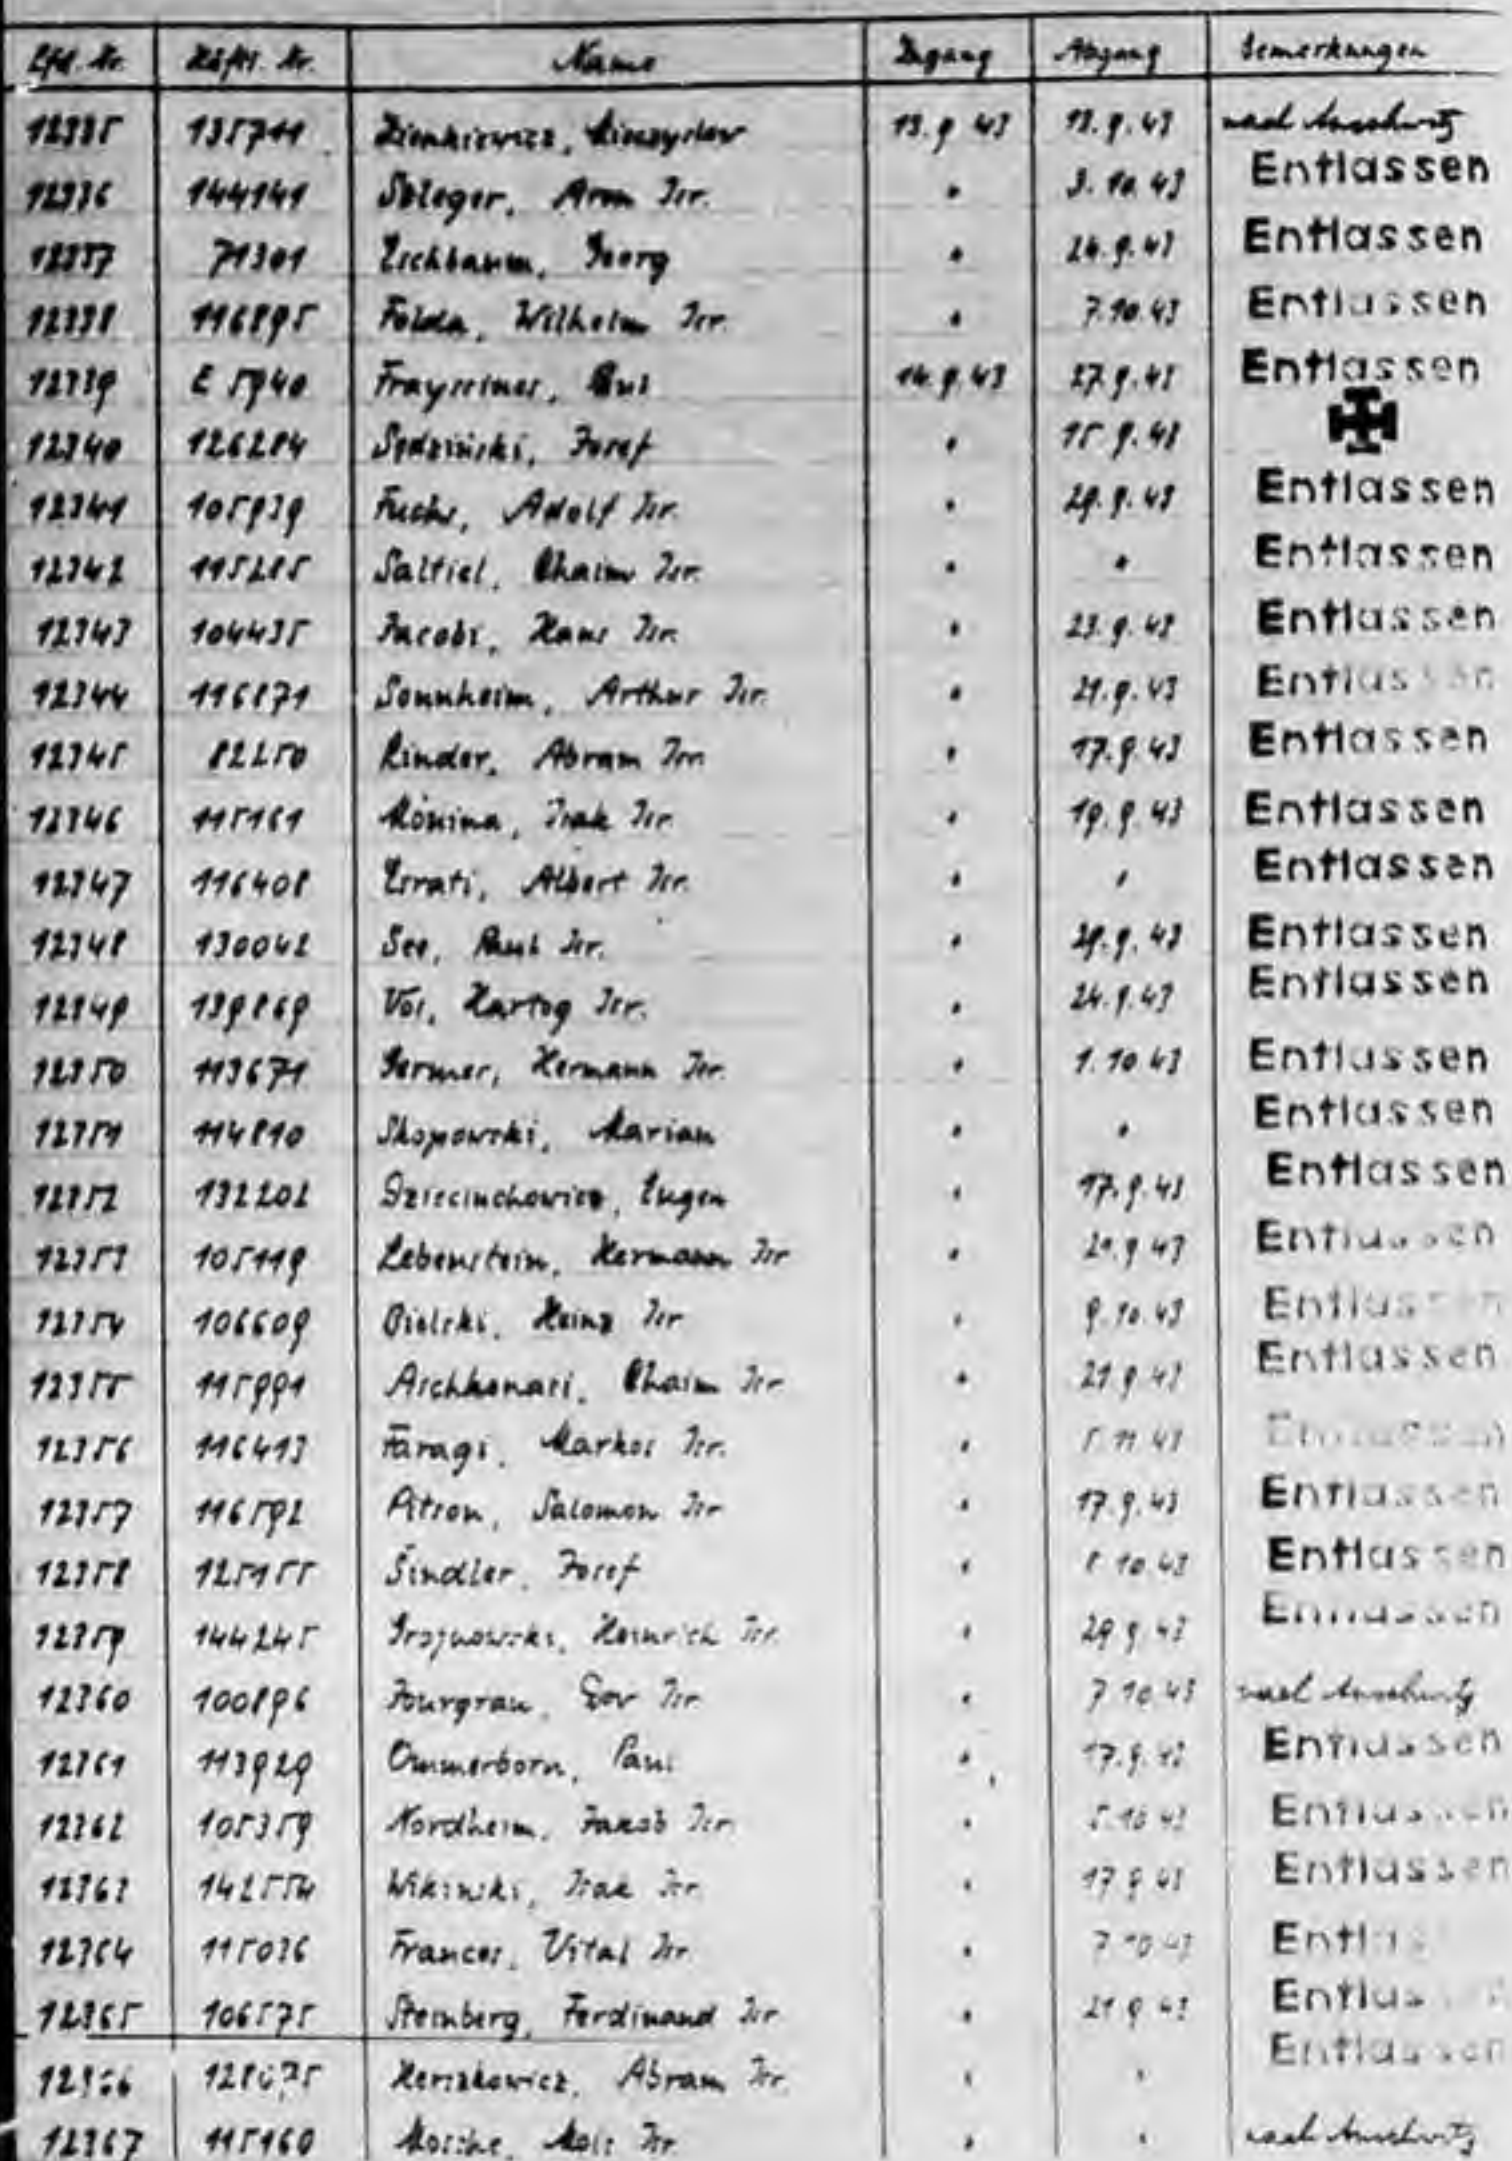 Lfd. Nr. Häftl. Nr. Name Zugang Abgang Bemerkungen
12335 135711 13.9.43 13.9.43 nach Auschwitz
12336 144141 Aron Isr. " 3.10.43 Entlassen
12337 71301 Eschbaum, Georg " 24.9.43 Entlassen
12338 116895 Folda, Wilhelm Isr. " 7.10.43 Entlassen
12339 E 5940 14.9.43 27.9.43 Entlassen
12340 126284 Sędziński, Josef " 15.9.43
12341 105939 Fuchs, Adolf Isr. " 29.9.43 Entlassen
12342 115285 Saltiel, Chaim Isr. " " Entlassen
12343 104435 Jacobi, Hans Isr. " 23.9.43 Entlassen
12344 116871 Sonnheim, Arthur Isr. " 21.9.43 Entlassen
12345 82250 Rinder, Abram Isr. " 17.9.43 Entlassen
12346 115161 Isak Isr. " 19.9.43 Entlassen
12347 116408 Esrati, Albert Isr. " " Entlassen
12348 130042 See, Paul Isr. " 29.9.43 Entlassen
12349 139869 Vos, Hartog Isr. " 24.9.43 Entlassen
12350 113671 Germer, Hermann Isr. " 1.10.43 Entlassen
12351 114810 Skopowski, Marian " " Entlassen
12352 132202 Dzieciuchowicz, Eugen " 17.9.43 Entlassen
12353 105119 Lebenstein, Hermann Isr " 21.9.43 Entlassen
12354 106609 Bielski, Heinz Isr " 9.10.43 Entlassen
12355 115991 Aschkenasi, Chaim Isr " 21.9.43 Entlassen
12356 116413 Faragi, Markos Isr. " 5.11.43 Entlassen
12357 116592 Pitson, Salomon Isr " 17.9.43 Entlassen
12358 125155 Šindler, Josef " 8.10.43 Entlassen
12359 144245 Grojnowski, Heinrich Isr. " 29.9.43 Entlassen
12360 100896 Isr " 7.10.43 nach Auschwitz
12361 113929 Ommerborn, Paul " 17.9.43 Entlassen
12362 105359 Nordheim, Jakob Isr. " 5.10.43 Entlassen
12363 142554 Wikinski, Isak Isr. " 17.9.43 Entlassen
12364 115036 Frances, Vital Isr. " 7.10.43 Entlas
12365 106575 Steinberg, Ferdinand Isr " 21.9.43 Entlas
12366 128675 Herszkowicz, Abram Isr. " " Entlassen
12367 115160 Mosche, Mois Isr. " " nach Auschwitz